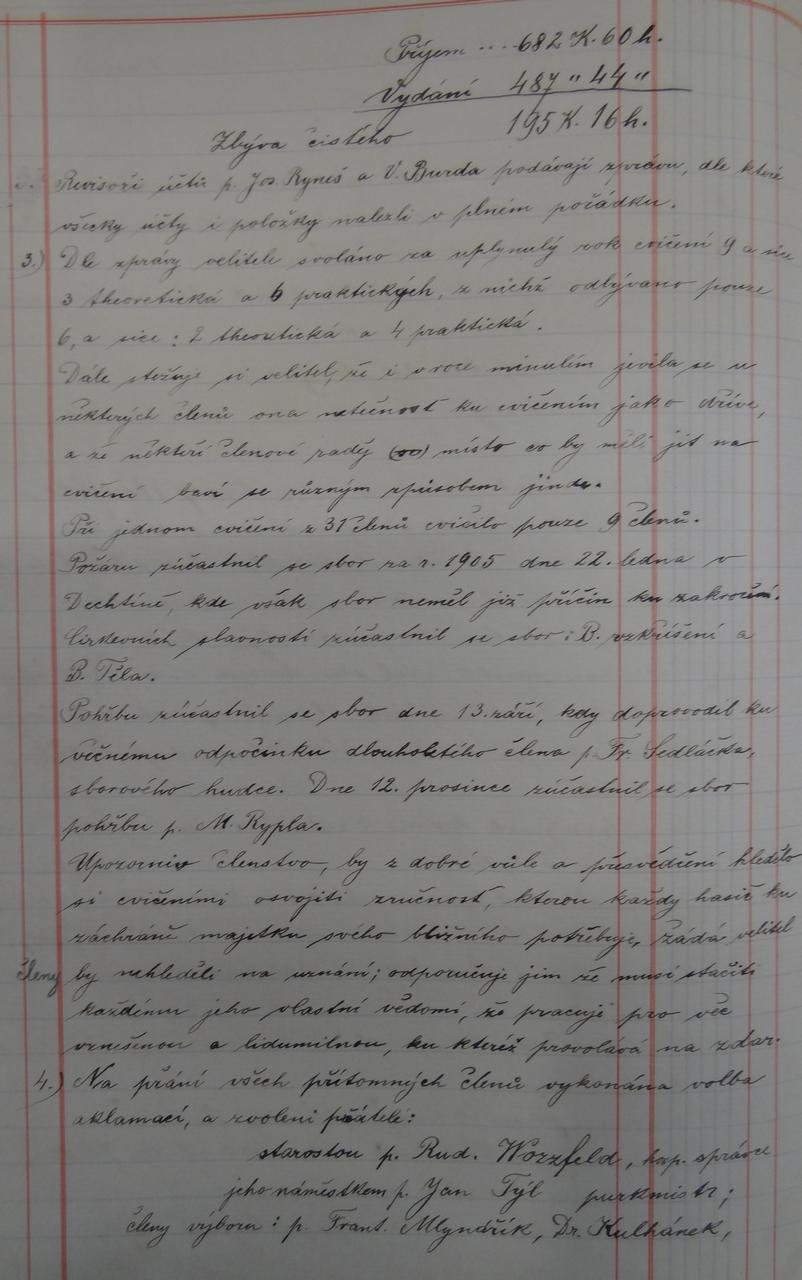 Příjem .... 682 K. 60 h.
Vydání 487 " 44 "
Zbýva čistého 195 K. 16 h.
Revisoři účtů p. Jos. Ryneš a V. Burda podávají zprávu, dle které
všecky účty i položky nalezli v plném pořádku.
3.) Dle zprávy velitele svoláno za uplynulý rok cvičení 9 a sice
3 theoretická a 6 praktických, z nichž odbýváno pouze
6, a sice: 2 theoretická a 4 praktická.
Dále stěžuje si velitel, že i v roce minulém jevila se u
některých členů ona netečnost ku cvičením jako dříve,
a že někteří členové raděj místo co by měli jít na
cvičení baví se různým způsobem jinde.
Při jednom cvičení z 31 členů cvičilo pouze 9 členů.
Požáru zúčastnil se sbor za r. 1905 dne 22. ledna v
Dechtíně, kde však sbor neměl již příčin ku zakročení.
Církevních slavností zúčastnil se sbor: B. vzkříšení a
B. Těla.
Pohřbu zúčastnil se sbor dne 13. září, kdy doprovodil ku
věčnému odpočinku dlouholetého člena p. Fr. Sedláčka,
sborového hudce. Dne 12. prosince zúčastnil se sbor
pohřbu p. M. Rypla.
Upozorniv členstvo, by z dobré vůle a přesvědčení hledělo
si cvičeními osvojiti zručnost, kterou každý hasič ku
záchráně majetku svého bližního potřebuje, žádá velitel
členy by nehleděli na uznání; odporučuje jim že musí stačiti
každému jeho vlastní vědomí, že pracuje pro věc
vznešenou a lidumilnou, ku kteréž provolává na zdar.
4.) Na přání všech přítomných členů vykonána volba
aklamací, a zvoleni přátelé:
starostou p. Rud. Worzfeld, hosp. správce
jeho náměstkem p. Jan Týl purkmistr;
členy výboru: p. Frant. Mlyndřík, Dr. Kulhánek,